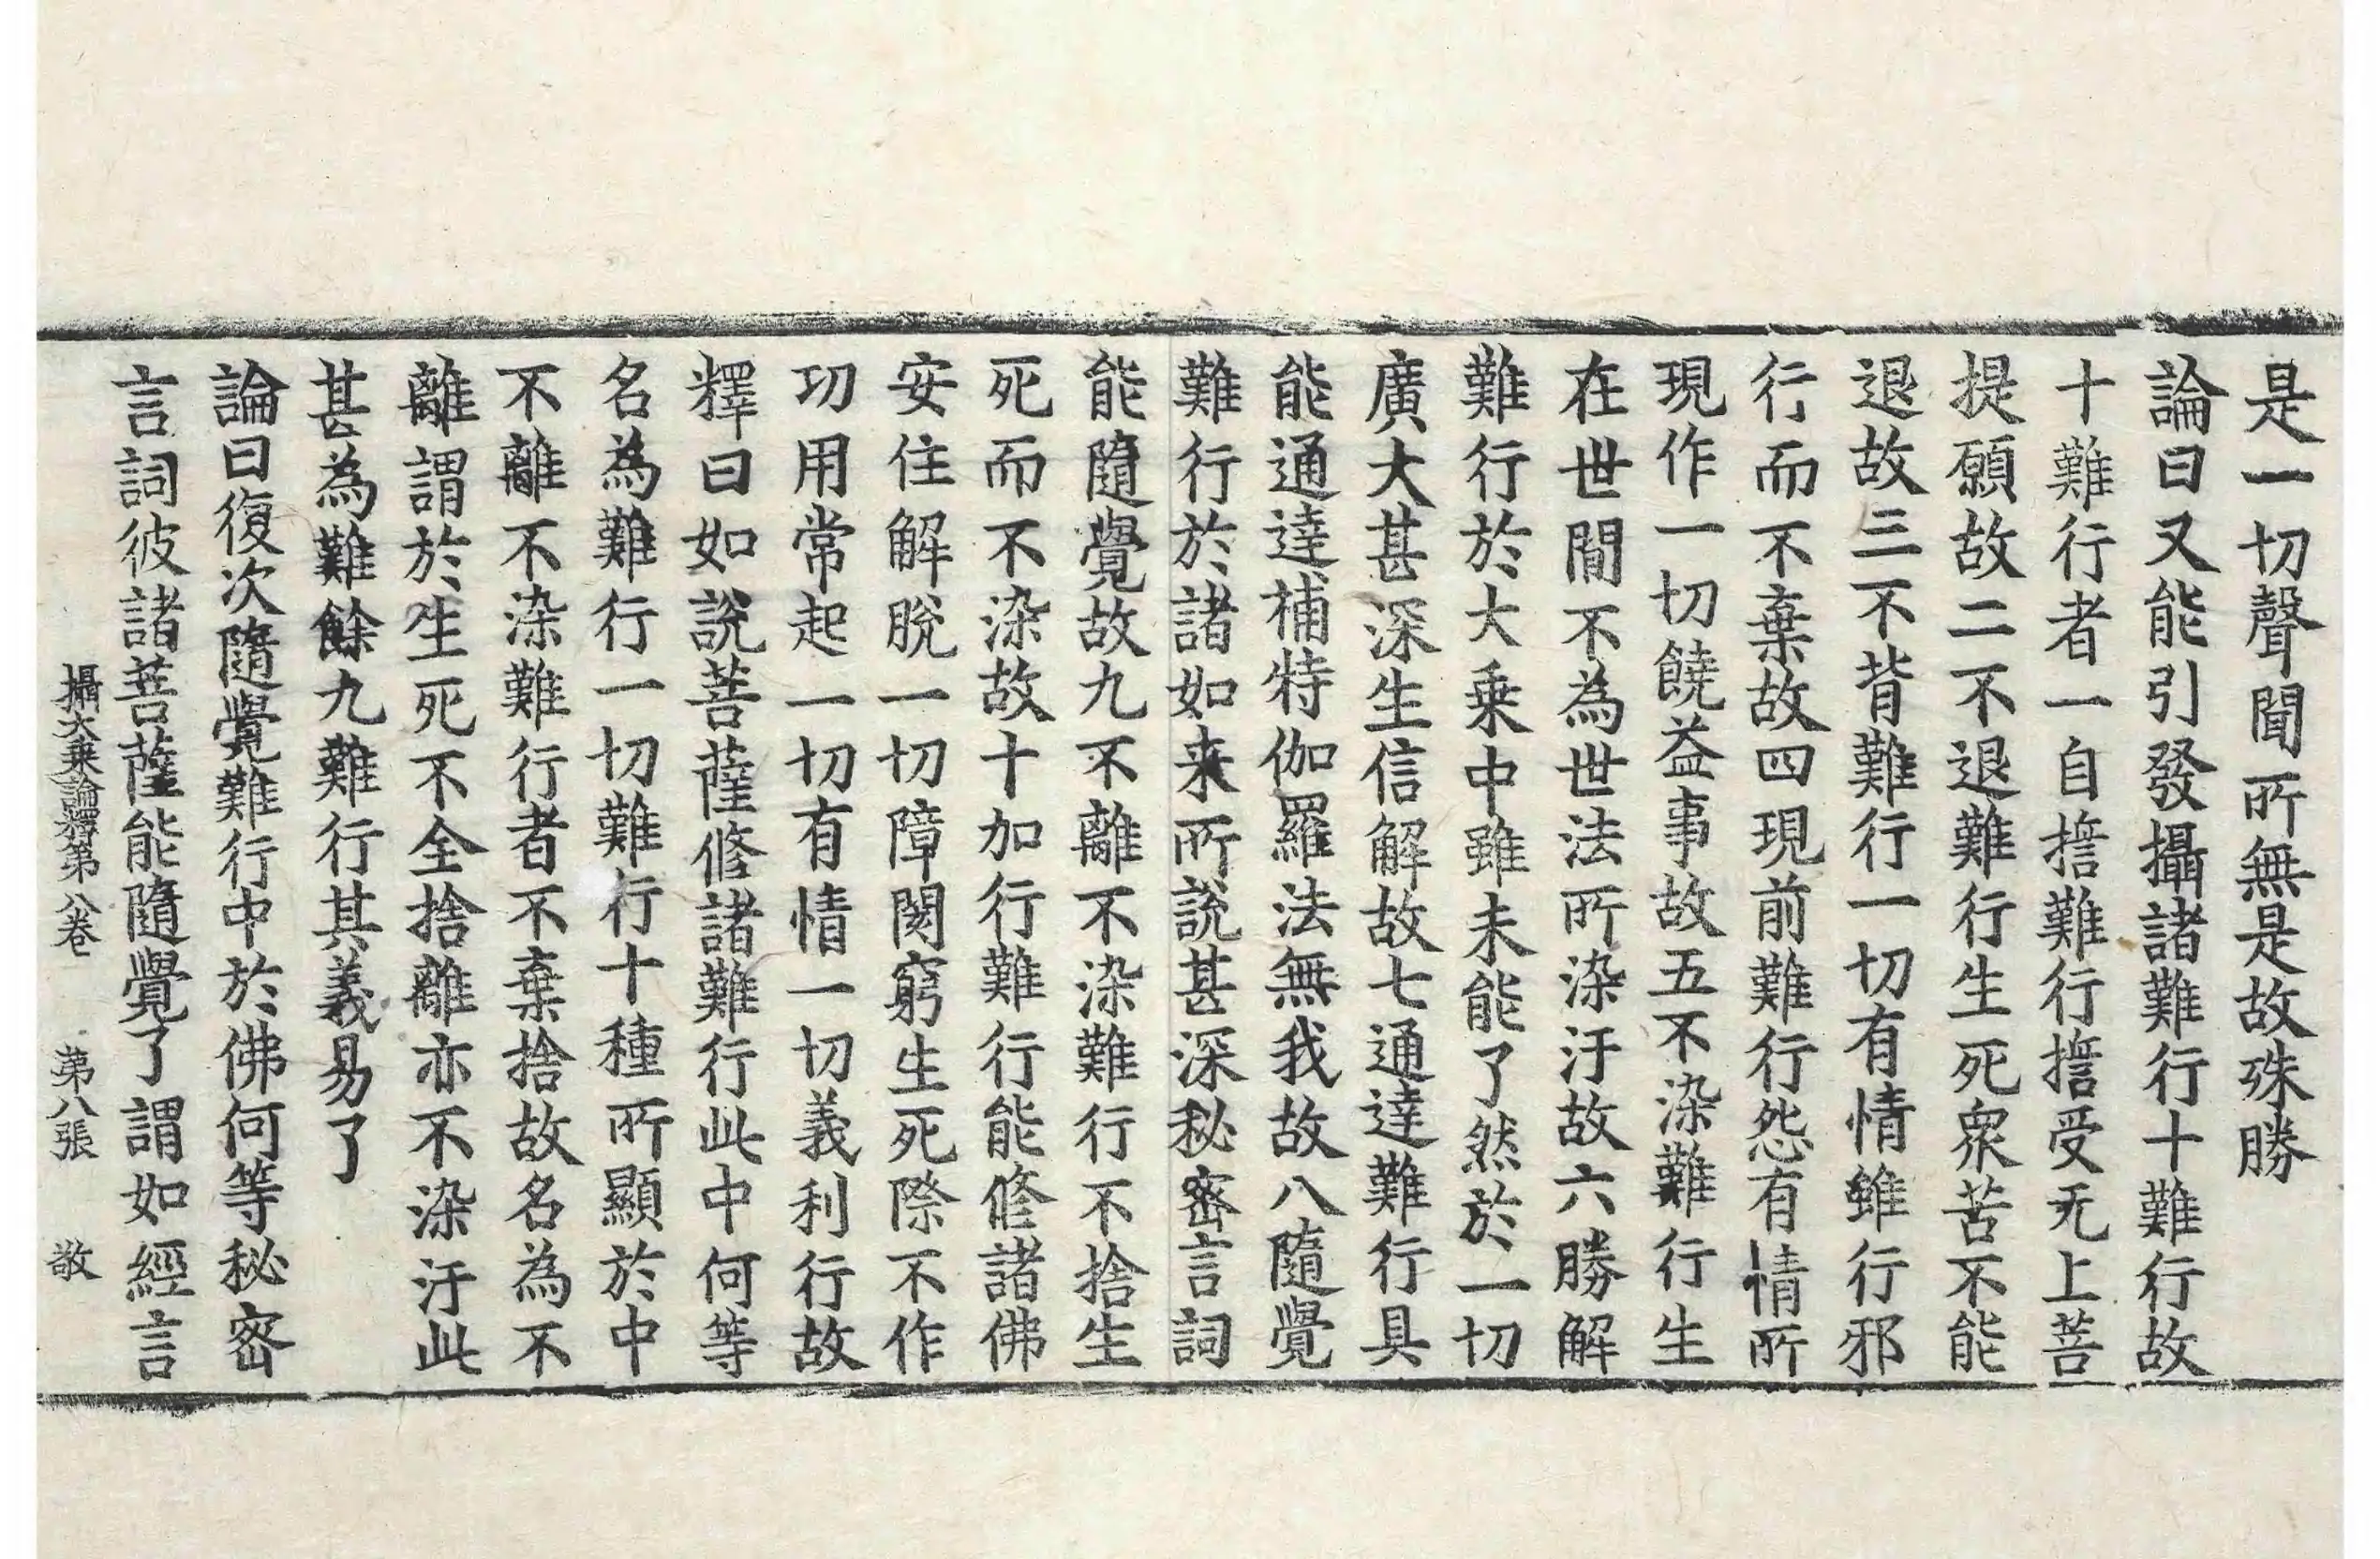 是一切聲聞所無是故殊勝
論曰又能引發攝諸難行十難行故
十難行者一自誓難行誓受无上菩
提願故二不退難行生死衆苦不能
退故三不背難行一切有情雖行邪
行而不棄故四現前難行怨有情所
現作一切饒益事故五不染難行生
在世間不為世法所染汙故六勝解
難行於大乗中雖未能了然於一切
廣大甚深生信解故七通達難行具
能通達補特伽羅法無我故八隨覺
難行於諸如来所說甚深秘密言詞
能隨覺故九不離不染難行不捨生
死而不染故十加行難行能修諸佛
安住解脫一切障閡窮生死際不作
功用常起一切有情一切義利行故
釋曰如說菩薩修諸難行此中何等
名為難行一切難行十種所顯於中
不離不染難行者不棄捨故名為不
離謂於生死不全捨離亦不染汙此
甚為難餘九難行其義易了
論曰復次隨覺難行中於佛何等秘密
言詞彼諸菩薩能隨覺了謂如經言
攝大乗論釋第八卷 第八張 敬